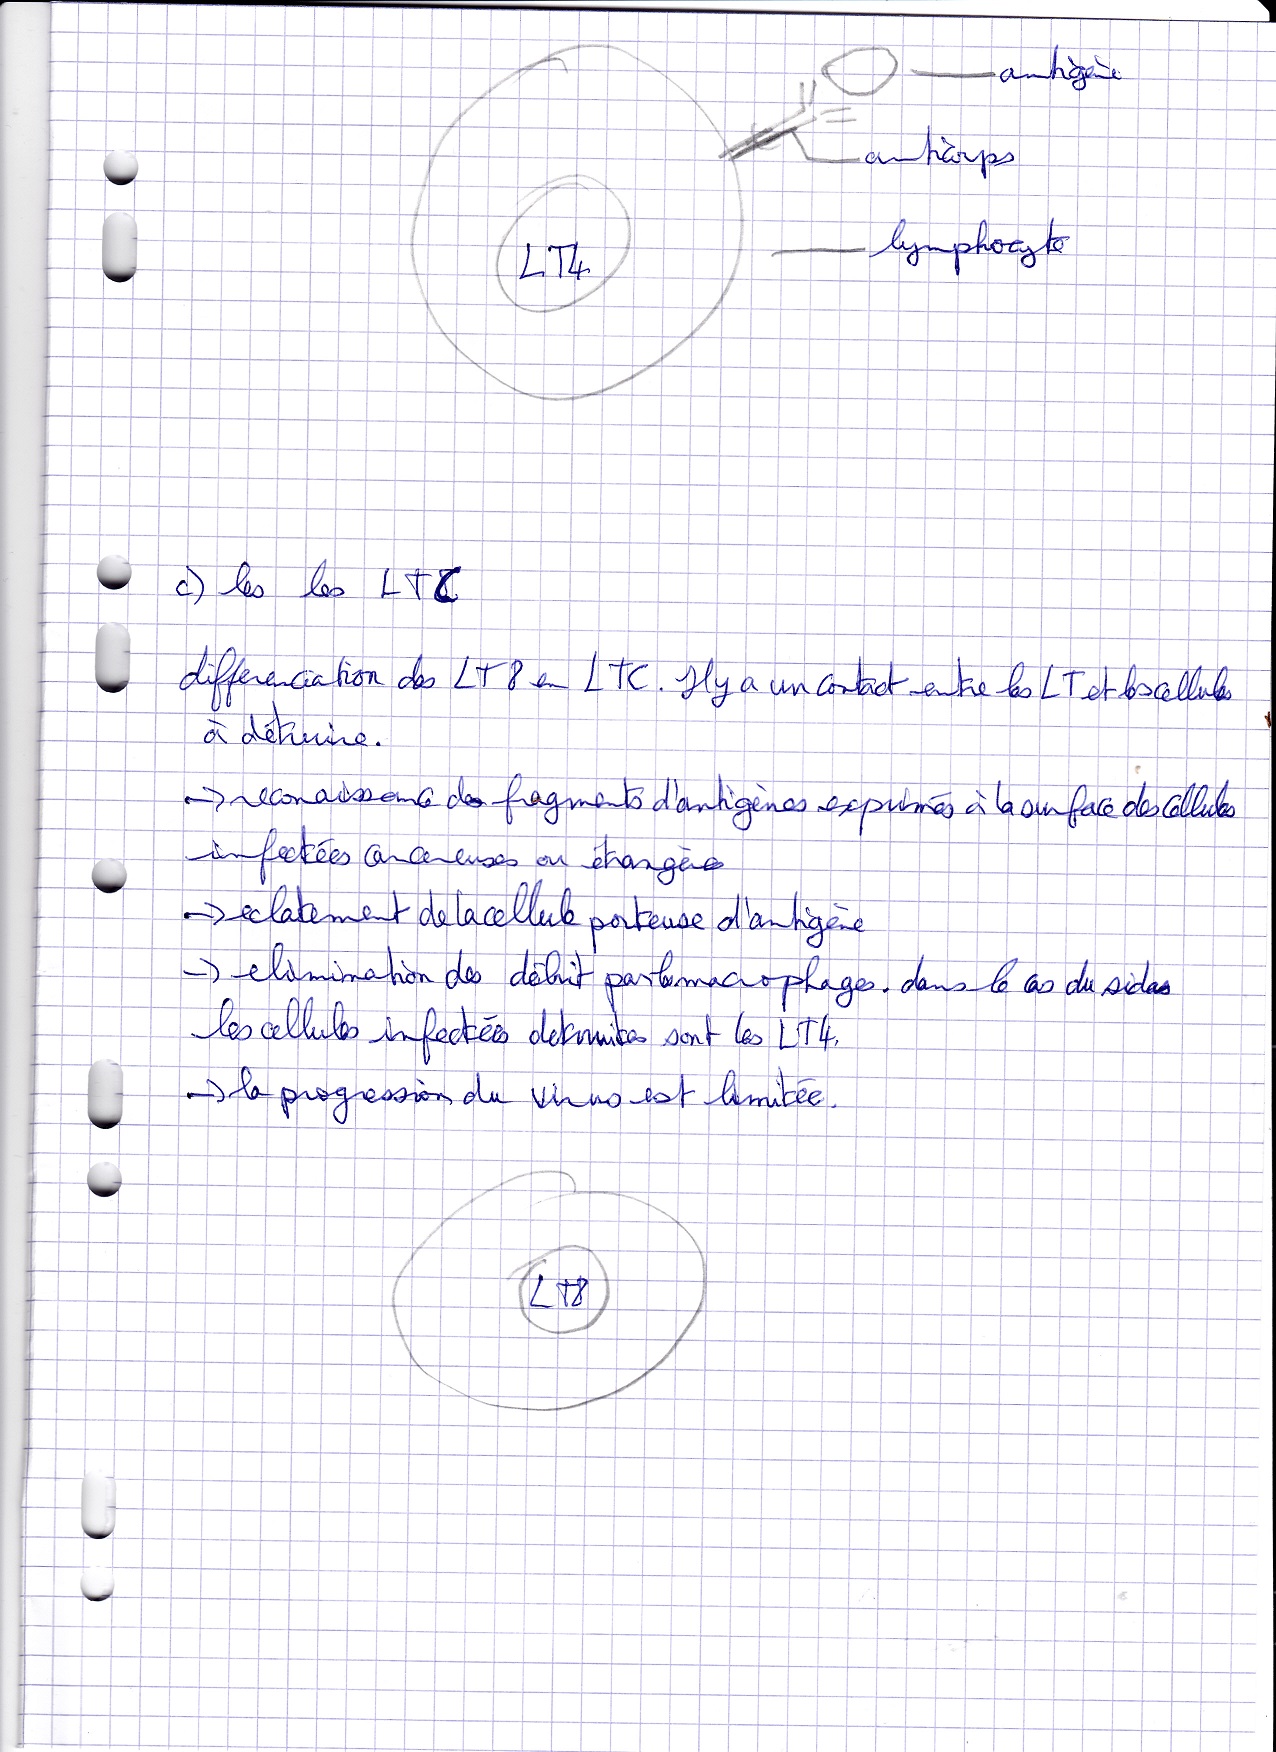 antigène
anticorps
lymphocyte
LT4
c) les les LTC
différenciation des LT8 en LTC. Il y a un contact entre les LT et les cellules
à détruire.
-> reconaissance des fragments d'antigènes exprimés à la surface des cellules
infectées cancereuses ou étrangère
-> eclatement de la cellule porteuse d'antigène
-> elimination des débrit par les macrophages. dans le cas du sidas
les cellules infectées detruites sont les LT4.
-> la progression du virus est limitée.
LT8